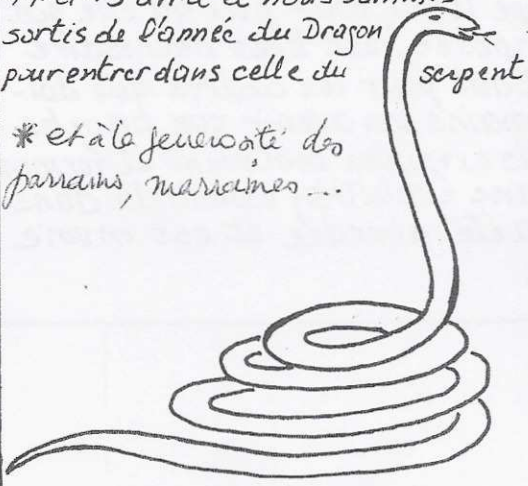 nous sommes
sortis de l'année du Dragon
pour entrer dans celle du serpent
* et à la generosité des
parrains, marraines...